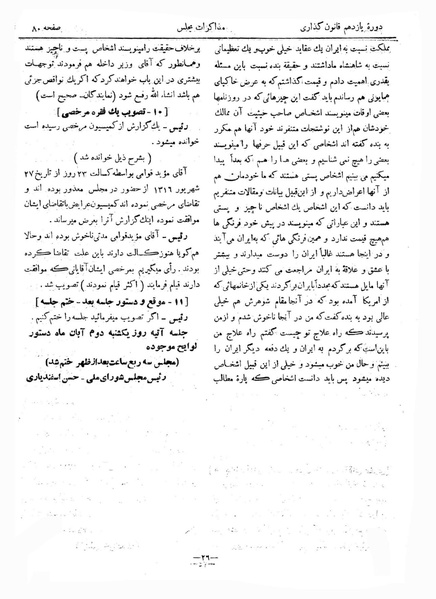 دورهٔ یازدهم قانون گذاری
مذاکرات مجلس
صفحه ۸۰
مملکت نسبت به ایران یك عقاید خیلی خوب و یك تعظیماتی
نسبت به شاهنشاه ما داشتند و حقیقة بنده نسبت باین مسئله
بقدری اهمیت دادم و قیمت گذاشتم که به عرض خاکپای
همایونی هم رساندم باید گفت این چیزهائی که در روزنامها
بعض اوقات مینویسند اشخاص صاحب حیثیت آن ممالك
خودشان هم از این نوشتجات متنفرند خود آنها هم مکرر
به بنده گفته اند اشخاصی که این قبیل حرفها را مینویسند
بعضی را هیچ نمی شناسیم و بعضی ها را هم که بعداً پیدا
میکنیم می بینیم اشخاص پستی هستند که ما خودمان هم
از آنها اعراض داریم و از این قبیل بیانات ومقالات متنفریم
باید دانست که این اشخاص یك اشخاص ناچیز و پستی
هستند و این عباراتی که مینویسند در پیش خود فرنگی ها
هم هیچ قیمت ندارد و همین فرنگی هائی که به ایران می آیند
و در اینجا هستند غالباً ایران را دوست میدارند و بیشتر
با عشق و علاقهٔ به ایران مراجعت می کنند وحتی خیلی از
آنها مایل هستند که مجدداً بایران برگردند یکی از خانمهائی که
از امریکا آمده بود که در آنجا مقام شوهرش هم خیلی
عالی بود به بنده گفت که من در آنجا ناخوش شدم و ازمن
پرسیدند که راه علاج تو چیست گفتم راه علاج من
باین است که برگردم به ایران و یك دفعه دیگر ایران را
ببینم و حال من خوب میشود و خیلی از این قبیل اشخاص
دیده میشود پس باید دانست اشخاصی که پارهٔ مطالب
برخلاف حقیقت را مینویسند اشخاص پست و ناچیز هستند
وهمانطور که آقای وزیر داخله هم فرمودند توجهات
بیشتری در این باب خواهند کرد که اگر یك نواقص جزئی
هم باشد انشاء الله رفع شود (نمایندگان - صحیح است)
[۱۰ - تصویب یك فقره مرخصی]
رئیس - یك گزارش از کمیسیون مرخصی رسیده است
خوانده میشود.
(بشرح ذیل خوانده شد)
آقای مؤید قوامی بواسطه کسالت ۲۲ روز از تاریخ ۲۷
شهریور ۱۳۱۶ از حضور در مجلس معذور بوده اند و
تقاضای مرخصی نموده اند که کمیسیون عرایض با تقاضای ایشان
موافقت نموده اینك گزارش آنرا بعرض میرساند.
رئیس - آقای مؤید قوامی مدتی ناخوش بوده اند و حالا
هم قدری کسالت دارند باین علت تقاضا کرده
بودند. رأی میگیریم بمرخصی ایشان آقایانی که موافقت
دارند قیام فرمایند (اکثر قیام نمودند) تصویب شد.
[۱۱ - موقع و دستور جلسه بعد - ختم جلسه]
رئیس - اگر تصویب میفرمائید جلسه را ختم کنیم.
جلسه آتیه روز یکشنبه دوم آبان ماه دستور
لوایح موجوده
(مجلس سه ربع ساعت بعد از ظهر ختم شد)
رئیس مجلس شورای ملی - حسن اسفندیاری
-۲۶-